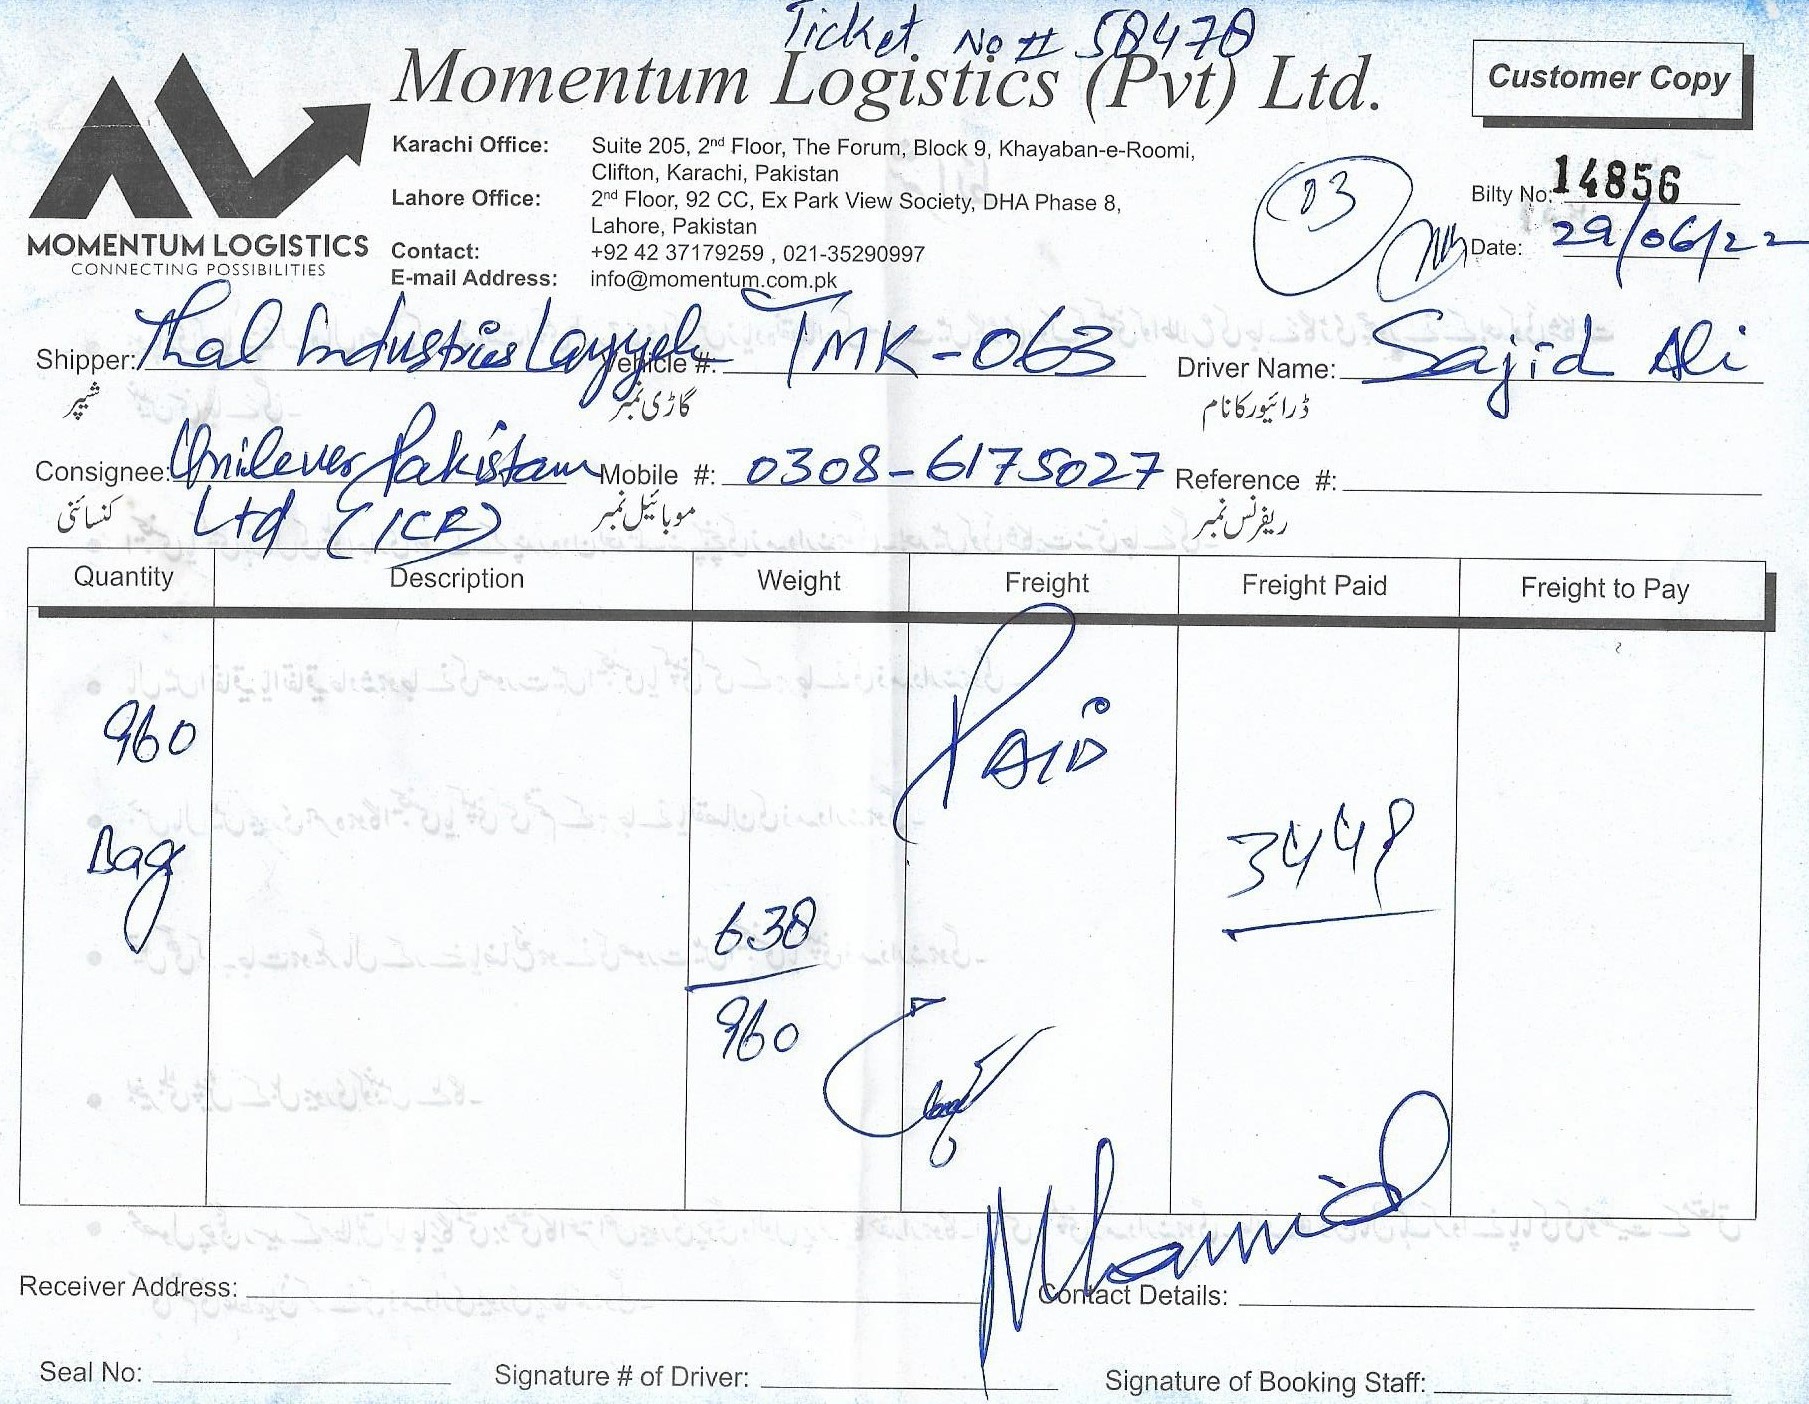 Ticket No # 58478
Momentum Logistics (Pvt) Ltd.
Customer Copy
MOMENTUM LOGISTICS
CONNECTING POSSIBILITIES
Karachi Office: Suite 205, 2nd Floor, The Forum, Block 9, Khayaban-e-Roomi,
Clifton, Karachi, Pakistan
Lahore Office: 2nd Floor, 92 CC, Ex Park View Society, DHA Phase 8,
Lahore, Pakistan
Contact: +92 42 37179259 , 021-35290997
E-mail Address: info@momentum.com.pk
03
Bilty No: 14856
Date: 29/06/22
Shipper: Thal Industries Layyah Vehicle #: TMK-063 Driver Name: Sajid Ali
شیپر گاڑی نمبر ڈرائیور کا نام
Consignee: Unilever Pakistan Mobile #: 0308-6175027 Reference #:
کنسائنی Ltd (ICF) موبائیل نمبر ریفرنس نمبر
Quantity Description Weight Freight Freight Paid Freight to Pay
960 PAID
Bag 3448
638
960
Receiver Address: Contact Details:
Seal No: Signature # of Driver: Signature of Booking Staff: